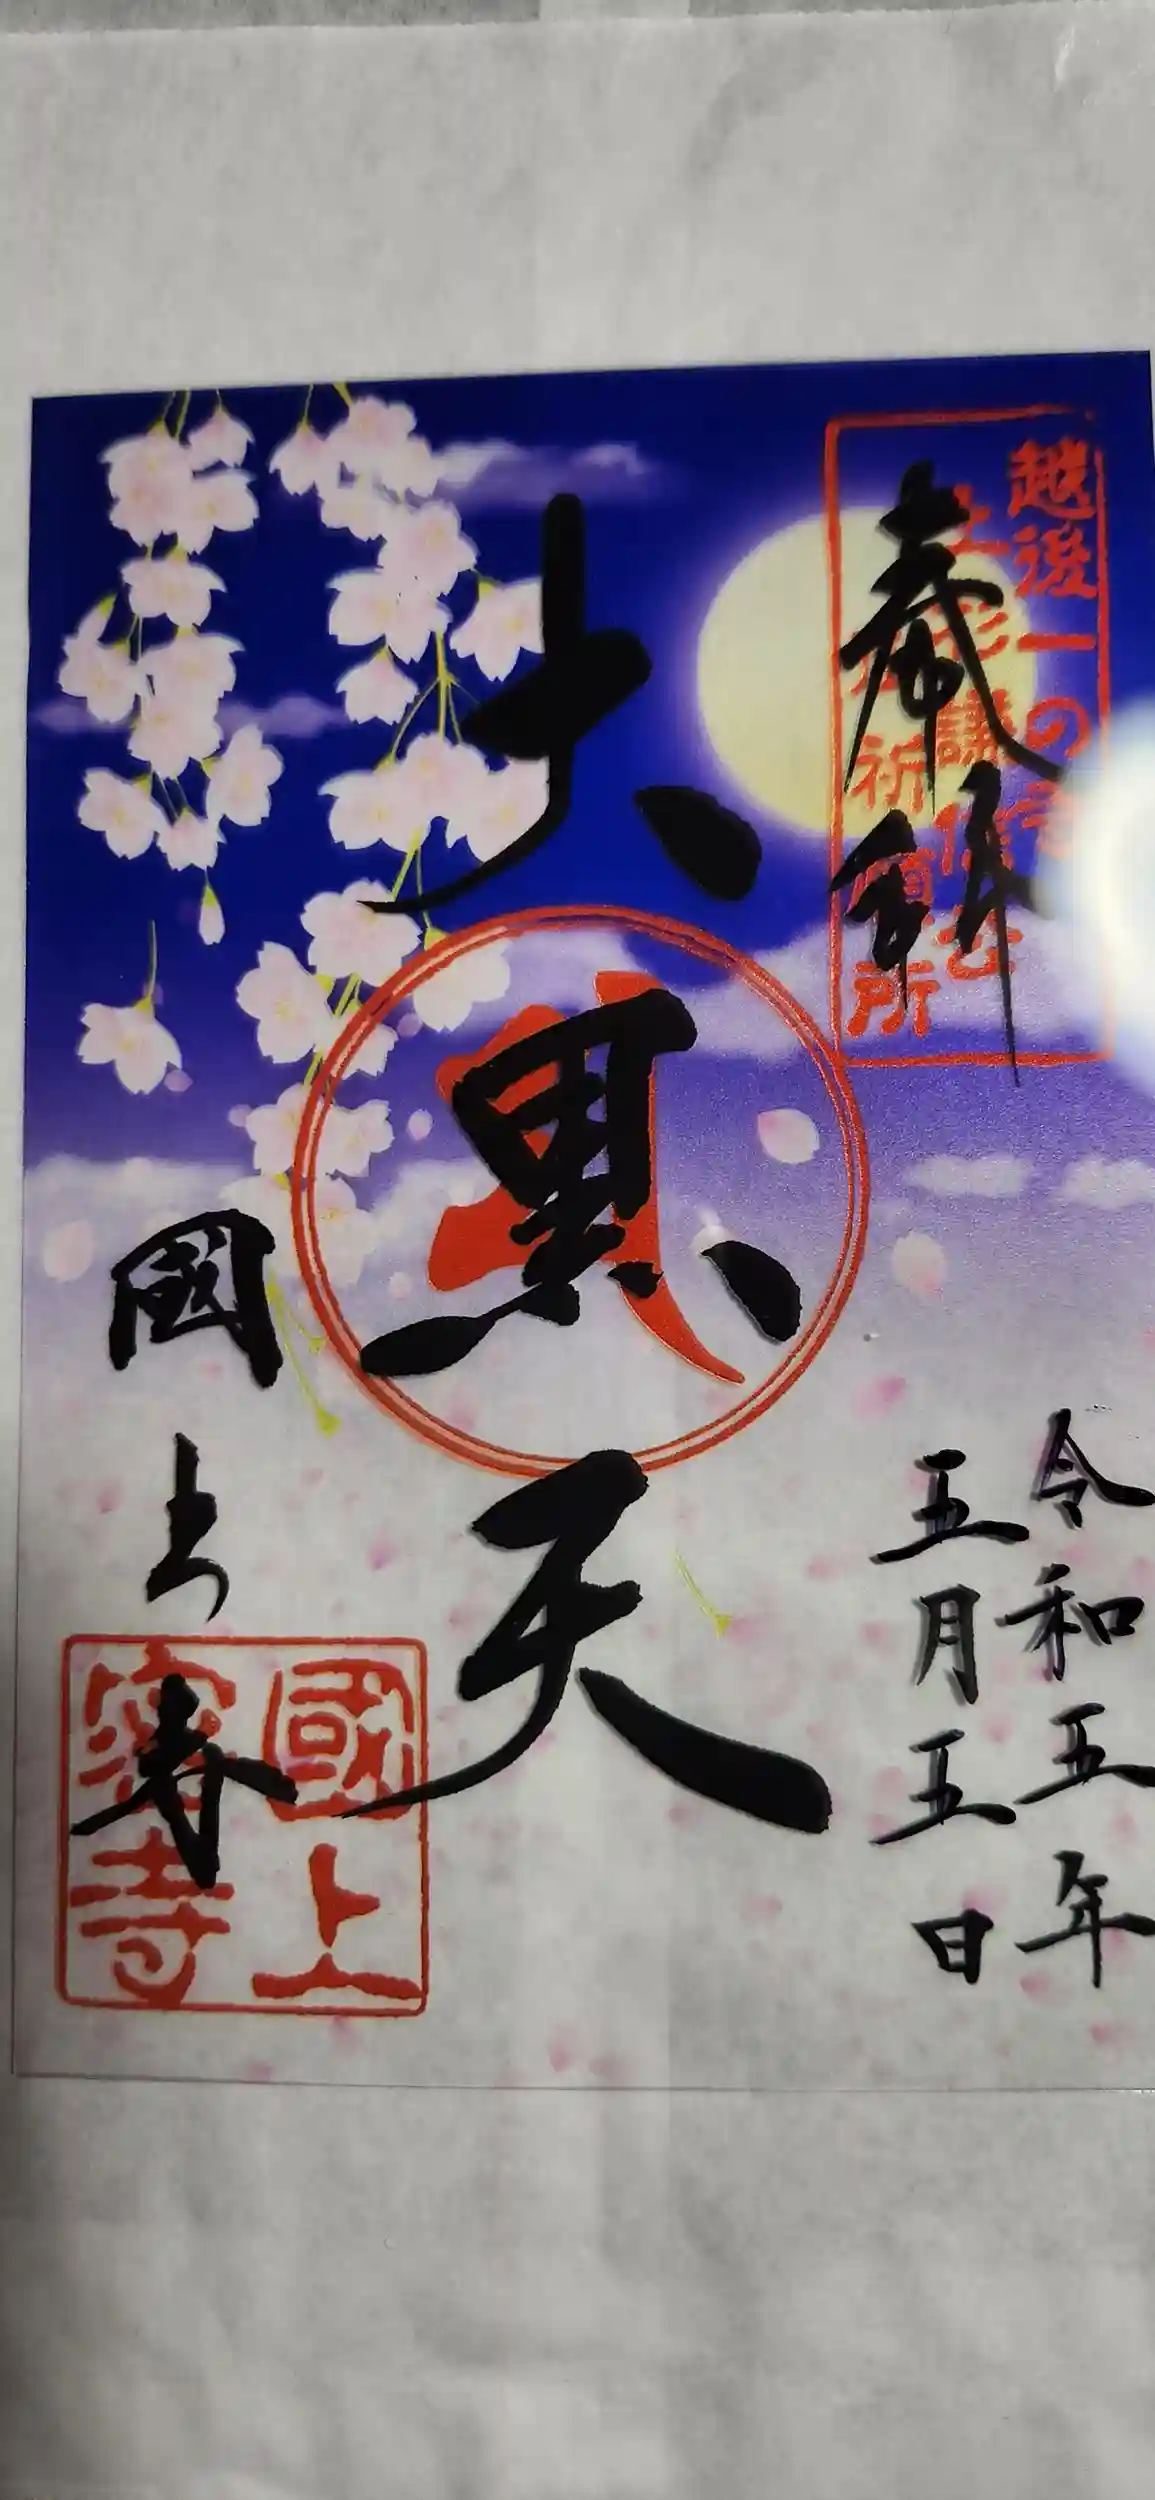 奉拝
越後一の
上杉謙信公
祈願所
令和五年
五月五日
大黒天
國上寺
國上
寺